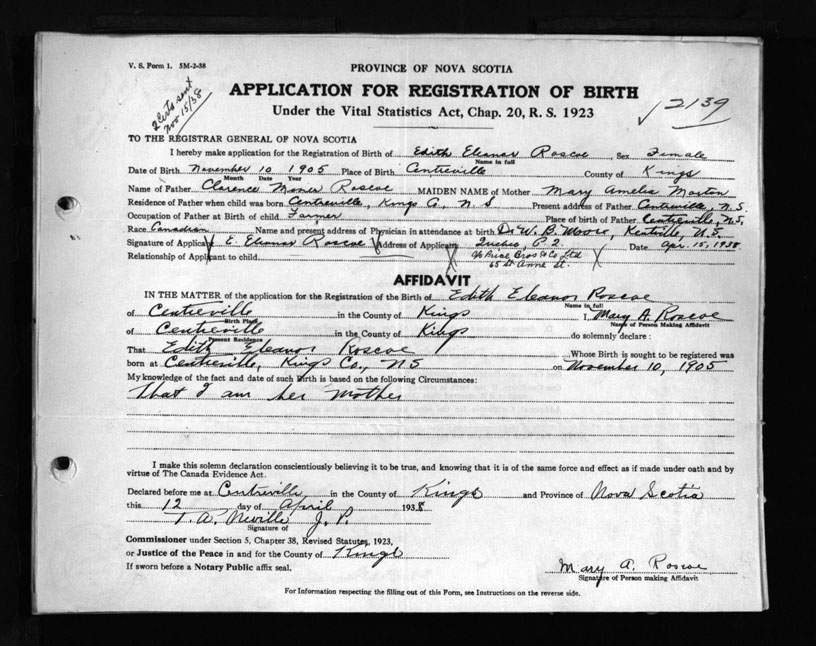 V. S. Form 1. 5M-2-38
PROVINCE OF NOVA SCOTIA
APPLICATION FOR REGISTRATION OF BIRTH
Under the Vital Statistics Act, Chap. 20, R. S. 1923
2 Certs sent
Nov 15/38
2139
TO THE REGISTRAR GENERAL OF NOVA SCOTIA
I hereby make application for the Registration of Birth of Edith Eleanor Roscoe Sex Female
Name in full
Date of Birth November 10 1905 Place of Birth Centreville County of Kings
Month Date Year
Name of Father Clarence Roscoe MAIDEN NAME of Mother Mary Amelia Morton
Residence of Father when child was born Centreville, Kings Co., N. S Present address of Father Centreville, N.S.
Occupation of Father at Birth of child Farmer Place of birth of Father Centreville, N.S.
Race Canadian Name and present address of Physician in attendance at birth Dr W. B. Moore, Kentville, N.S.
Signature of Applicant E. Eleanor Roscoe Address of Applicant Quebec, P.Q. Date Apr. 15, 1938
Relationship of Applicant to child c/o Price Bros & Co Ltd
65 St. Anne St.
AFFIDAVIT
IN THE MATTER of the application for the Registration of the Birth of Edith Eleanor Roscoe
Name in full
of Centreville in the County of Kings I, Mary A. Roscoe
Birth Place Name of Person Making Affidavit
of Centreville in the County of Kings do solemnly declare:
Present Residence
That Edith Eleanor Roscoe Whose Birth is sought to be registered was
born at Centreville, Kings Co., N.S on November 10, 1905
My knowledge of the fact and date of such Birth is based on the following Circumstances:
That I am her Mother
I make this solemn declaration conscientiously believing it to be true, and knowing that it is of the same force and effect as if made under oath and by
virtue of The Canada Evidence Act.
Declared before me at Centreville in the County of Kings and Province of Nova Scotia
this 12 day of April 1938
T. A. Neville J. P.
Signature of
Commissioner under Section 5, Chapter 38, Revised Statutes, 1923,
or Justice of the Peace in and for the County of Kings
If sworn before a Notary Public affix seal.
Mary A. Roscoe
Signature of Person making Affidavit
For Information respecting the filling out of this Form, see Instructions on the reverse side.